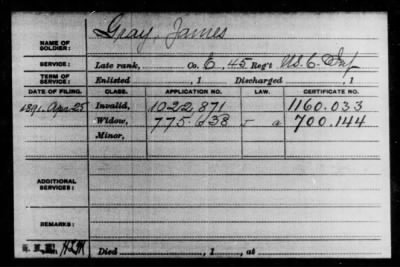 NAME OF SOLDIER: Gray, James
SERVICE: Late rank, Co. E, 45 Reg't U.S.C. Inf
TERM OF SERVICE: Enlisted , 1 Discharged , 1
DATE OF FILING. CLASS. APPLICATION NO. LAW. CERTIFICATE NO.
1891. Apr. 25 Invalid, 1022,871 1160.033
Widow, 775.638 a 700,144
Minor,
ADDITIONAL SERVICES:
REMARKS:
Died , 1 , at